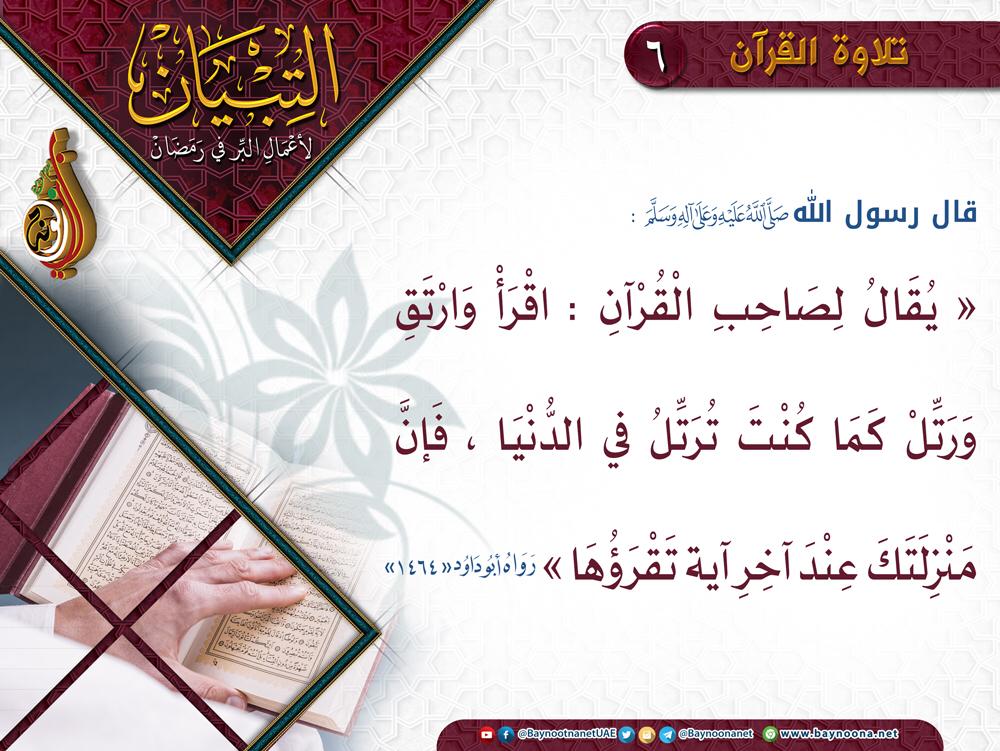 التِّبْيَان
لأَعْمَالِ البِّر في رَمَضَانْ
تلاوة القرآن
٦
قال رسول الله صَلَّى اللهُ عَلَيْهِ وَعَلَى آلِهِ وَسَلَّمَ :
« يُقَالُ لِصَاحِبِ الْقُرْآنِ : اقْرَأْ وَارْتَقِ
وَرَتِّلْ كَمَا كُنْتَ تُرَتِّلُ في الدُّنْيَا ، فَإِنَّ
مَنْزِلَتَكَ عِنْدَ آخِرِ آية تَقْرَؤُهَا » رَوَاهُ أَبُو دَاوُد «١٤٦٤»
@BaynootnanetUAE @Baynoonanet www.baynoona.net